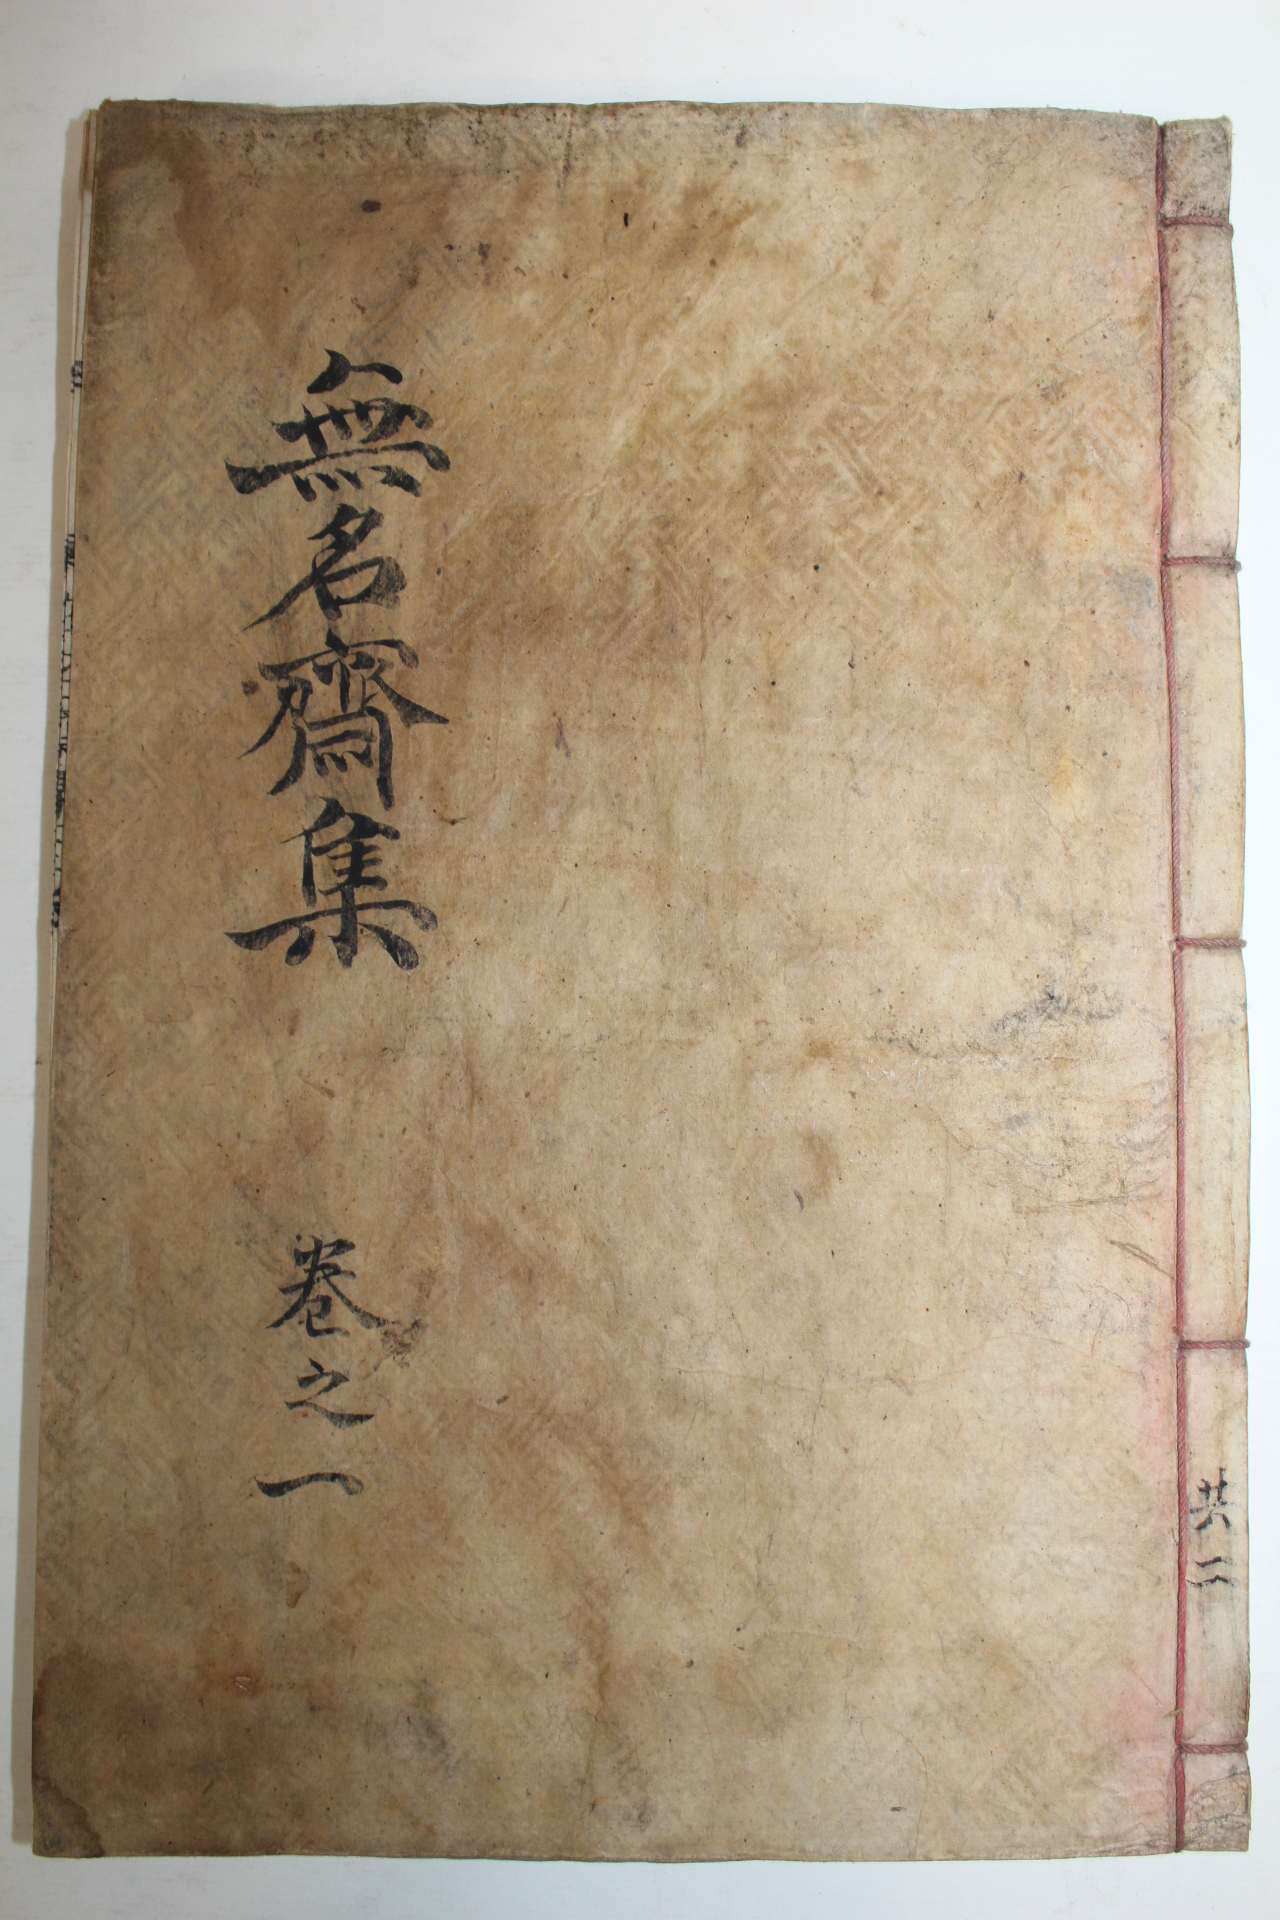 共二
無名齋集
卷之一